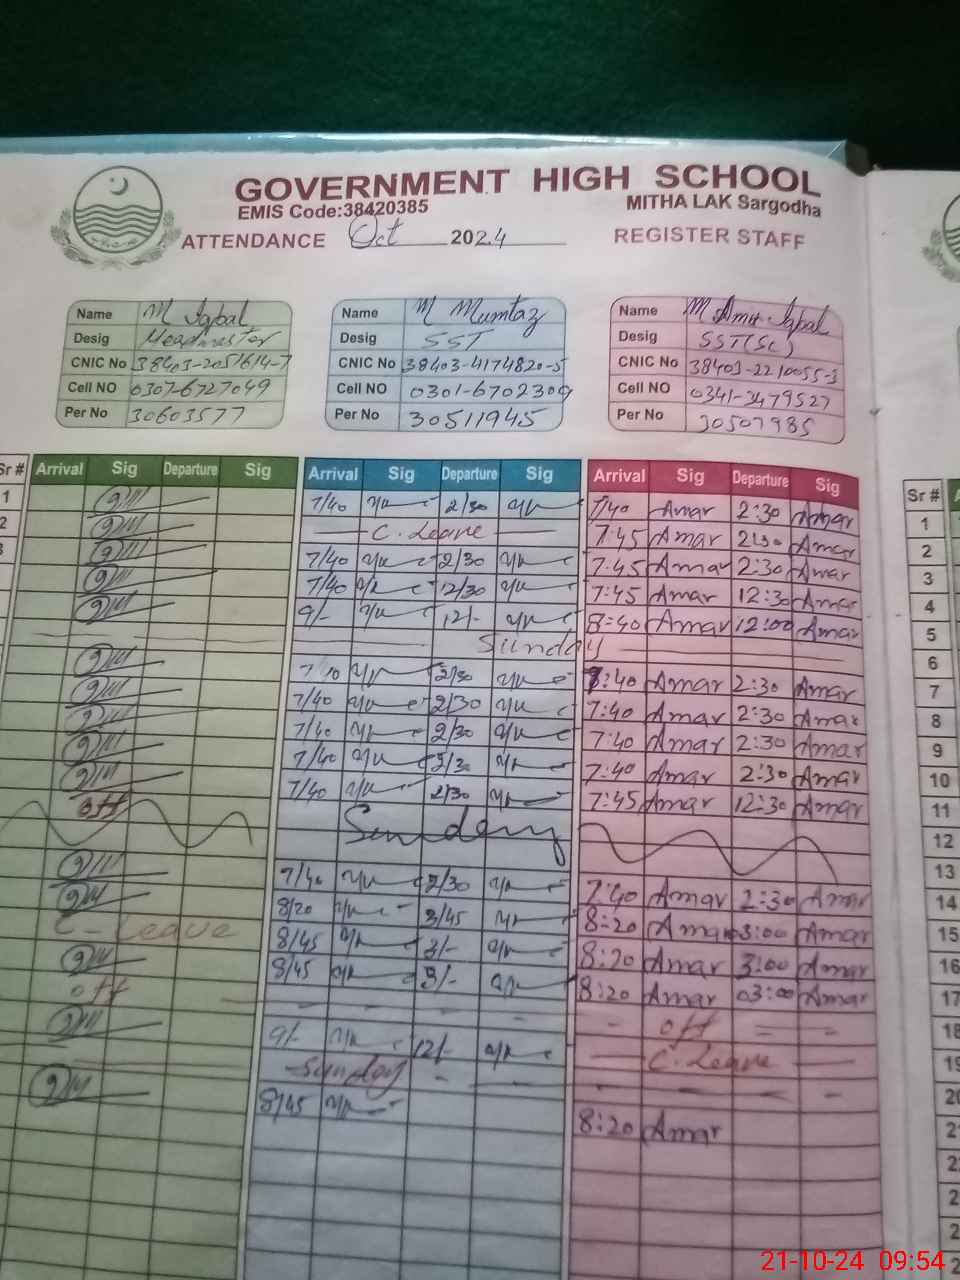 GOVERNMENT HIGH SCHOOL
EMIS Code:38420385 MITHA LAK Sargodha
ATTENDANCE Oct 2024 REGISTER STAFF
Name M Iqbal Name M Mumtaz Name M Amar Iqbal
Desig Headmaster Desig SST Desig SST(Sc)
CNIC No 38403-2051614-7 CNIC No 38403-4174820-5 CNIC No 38403-2210055-3
Cell NO 0307-6727049 Cell NO 0301-6702309 Cell NO 0341-3479527
Per No 30603577 Per No 30511945 Per No 30507985
Sr # Arrival Sig Departure Sig Arrival Sig Departure Sig Arrival Sig Departure Sig Sr #
1 7/40 2/30 7/40 Amar 2:30 Amar 1
2 C. Leave 7:45 Amar 2:30 Amar 2
3 7/40 2/30 7:45 Amar 2:30 Amar 3
7/40 12/30 7:45 Amar 12:30 Amar 4
9/- 12/- 8:40 Amar 12:00 Amar 5
Sunday 6
2/30 8:40 Amar 2:30 Amar 7
7/40 2/30 7:40 Amar 2:30 Amar 8
7/40 2/30 7:40 Amar 2:30 Amar 9
7/40 2/30 7:40 Amar 2:30 Amar 10
7/40 2/30 7:45 Amar 12:30 Amar 11
off Sunday 12
13
7/40 2/30 7:40 Amar 2:30 Amar 14
8/20 3/45 8:20 Amar 03:00 Amar 15
C-Leave 8/45 3/- 8:20 Amar 3:00 Amar 16
8/45 3/- 8:20 Amar 03:00 Amar 17
off - off 18
9/- 12/- C. Leave 19
Sunday 20
8/45 8:20 Amar
21-10-24 09:54